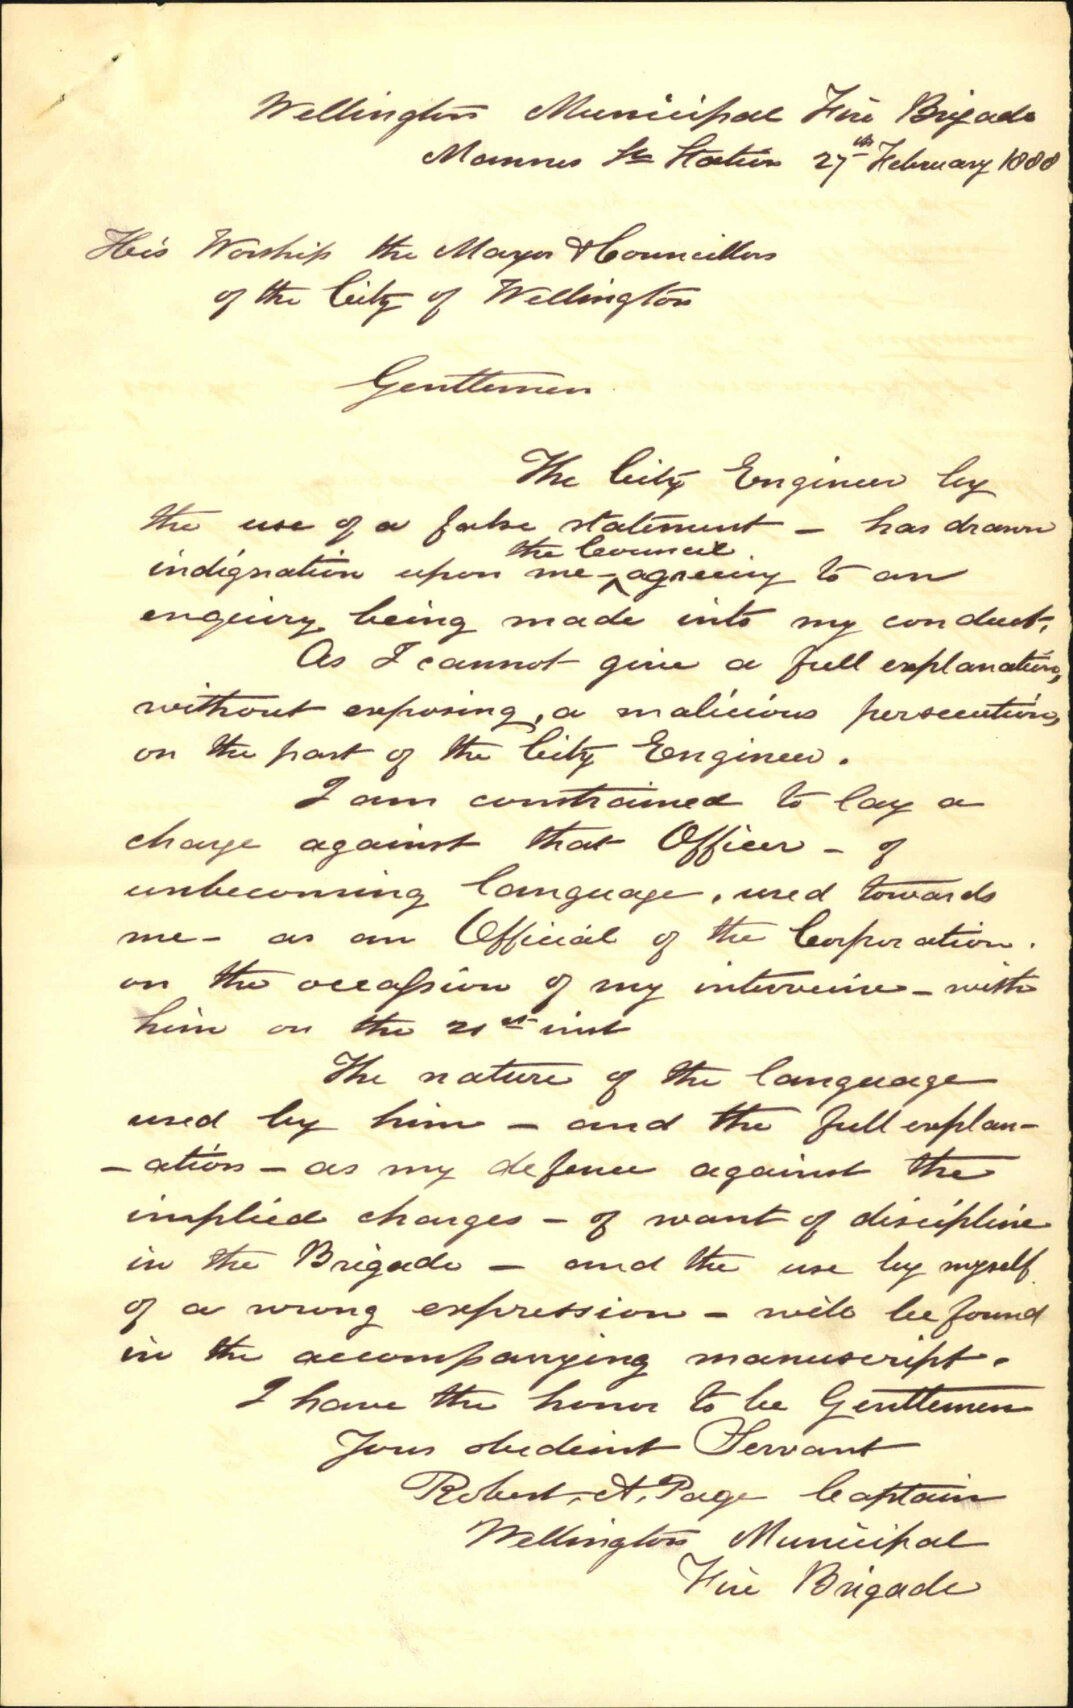 Wellington Municipal Fire Brigade
Manners St Station 27th February 1888
His Worship the Mayor & Councillors
of the City of Wellington
Gentlemen
The City Engineer by
the use of a false statement – has drawn
the Council
indignation upon me – agreeing to an
enquiry being made into my conduct.
As I cannot give a full explanation,
without exposing, a malicious persecution,
on the part of the City Engineer.
I am constrained to lay a
charge against that Officer – of
unbecoming language, used towards
me – as an Official of the Corporation.
on the occassion of my interveiw – with
him on the 21st inst
The nature of the language
used by him – and the full explan–
–ation – as my defence against the
implied charges – of want of discipline
in the Brigade – and the use by myself
of a wrong expression – will be found
in the accompanying manuscript.
I have the honor to be Gentlemen
Your obedient Servant
Robert. A. Page Captain
Wellington Municipal
Fire Brigade